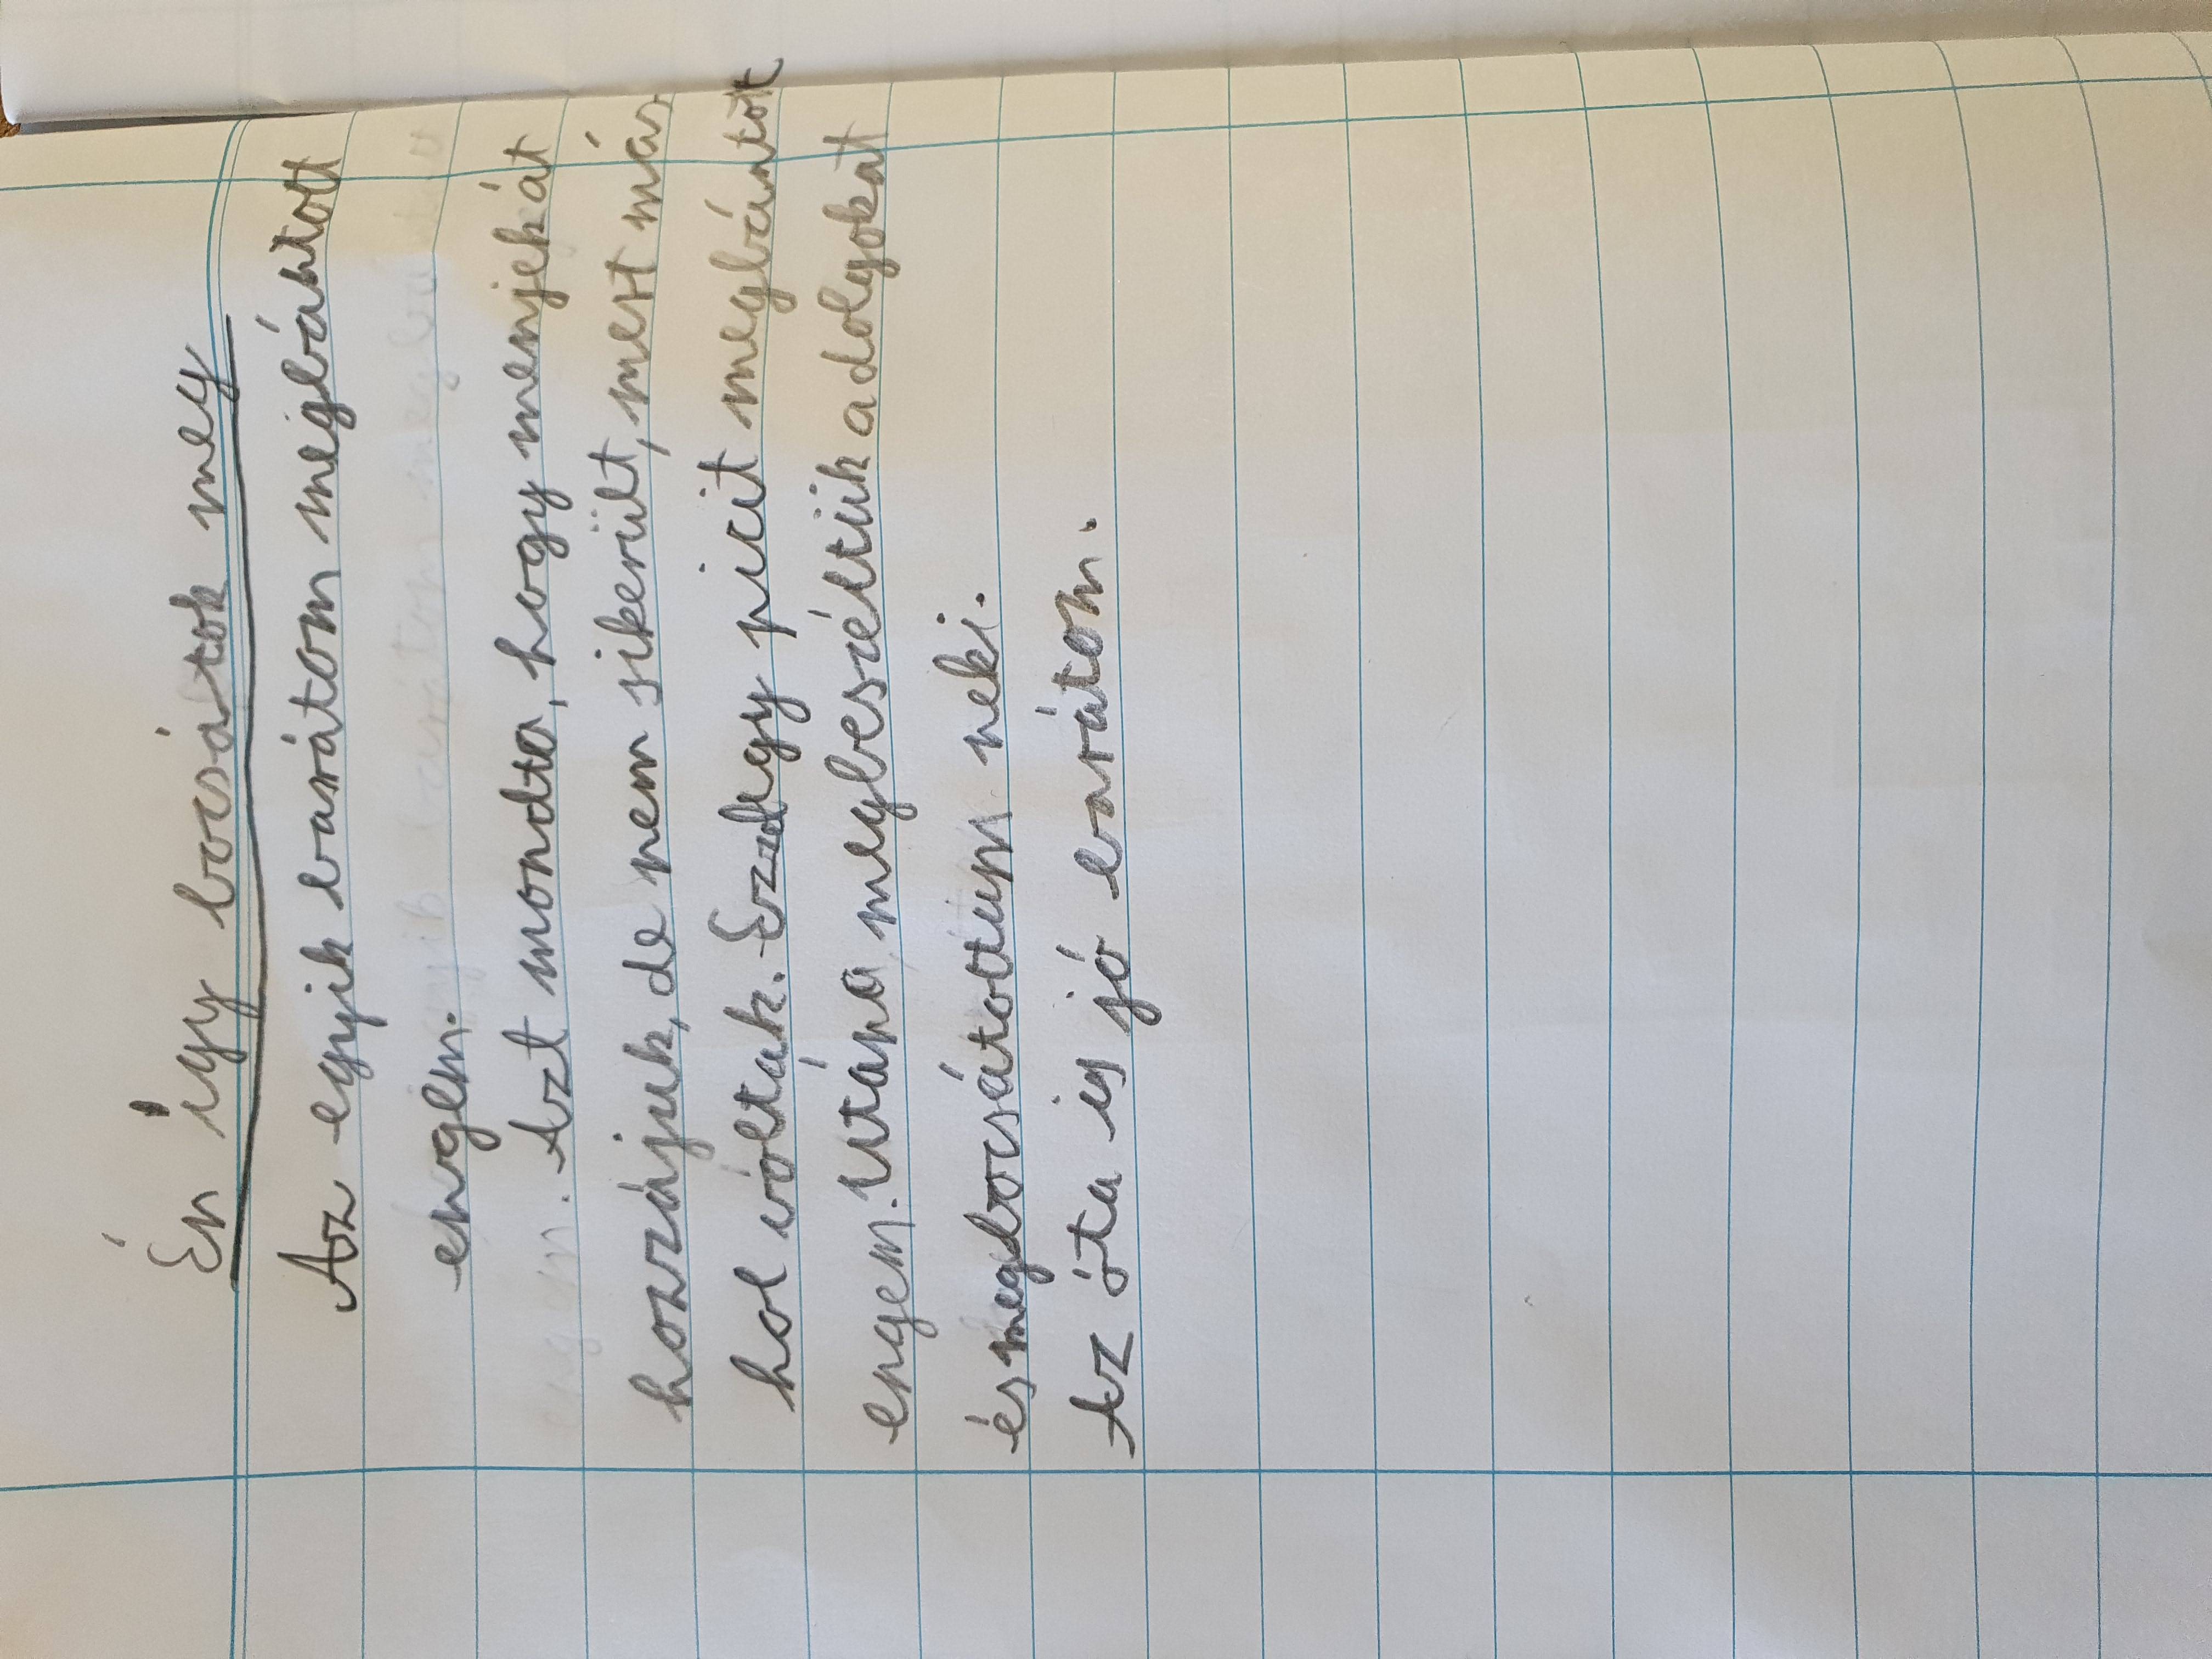 Én így bocsátok meg
Az egyik barátom megbántott
engem.
Azt mondta, hogy menjek át
hozzájuk, de nem sikerült, mert más
hol vóltak. Ez egy picit megbántot
engem. Utána, megbeszéltük a dolgokat
és megbocsátottum neki.
Az óta is jó barátom.